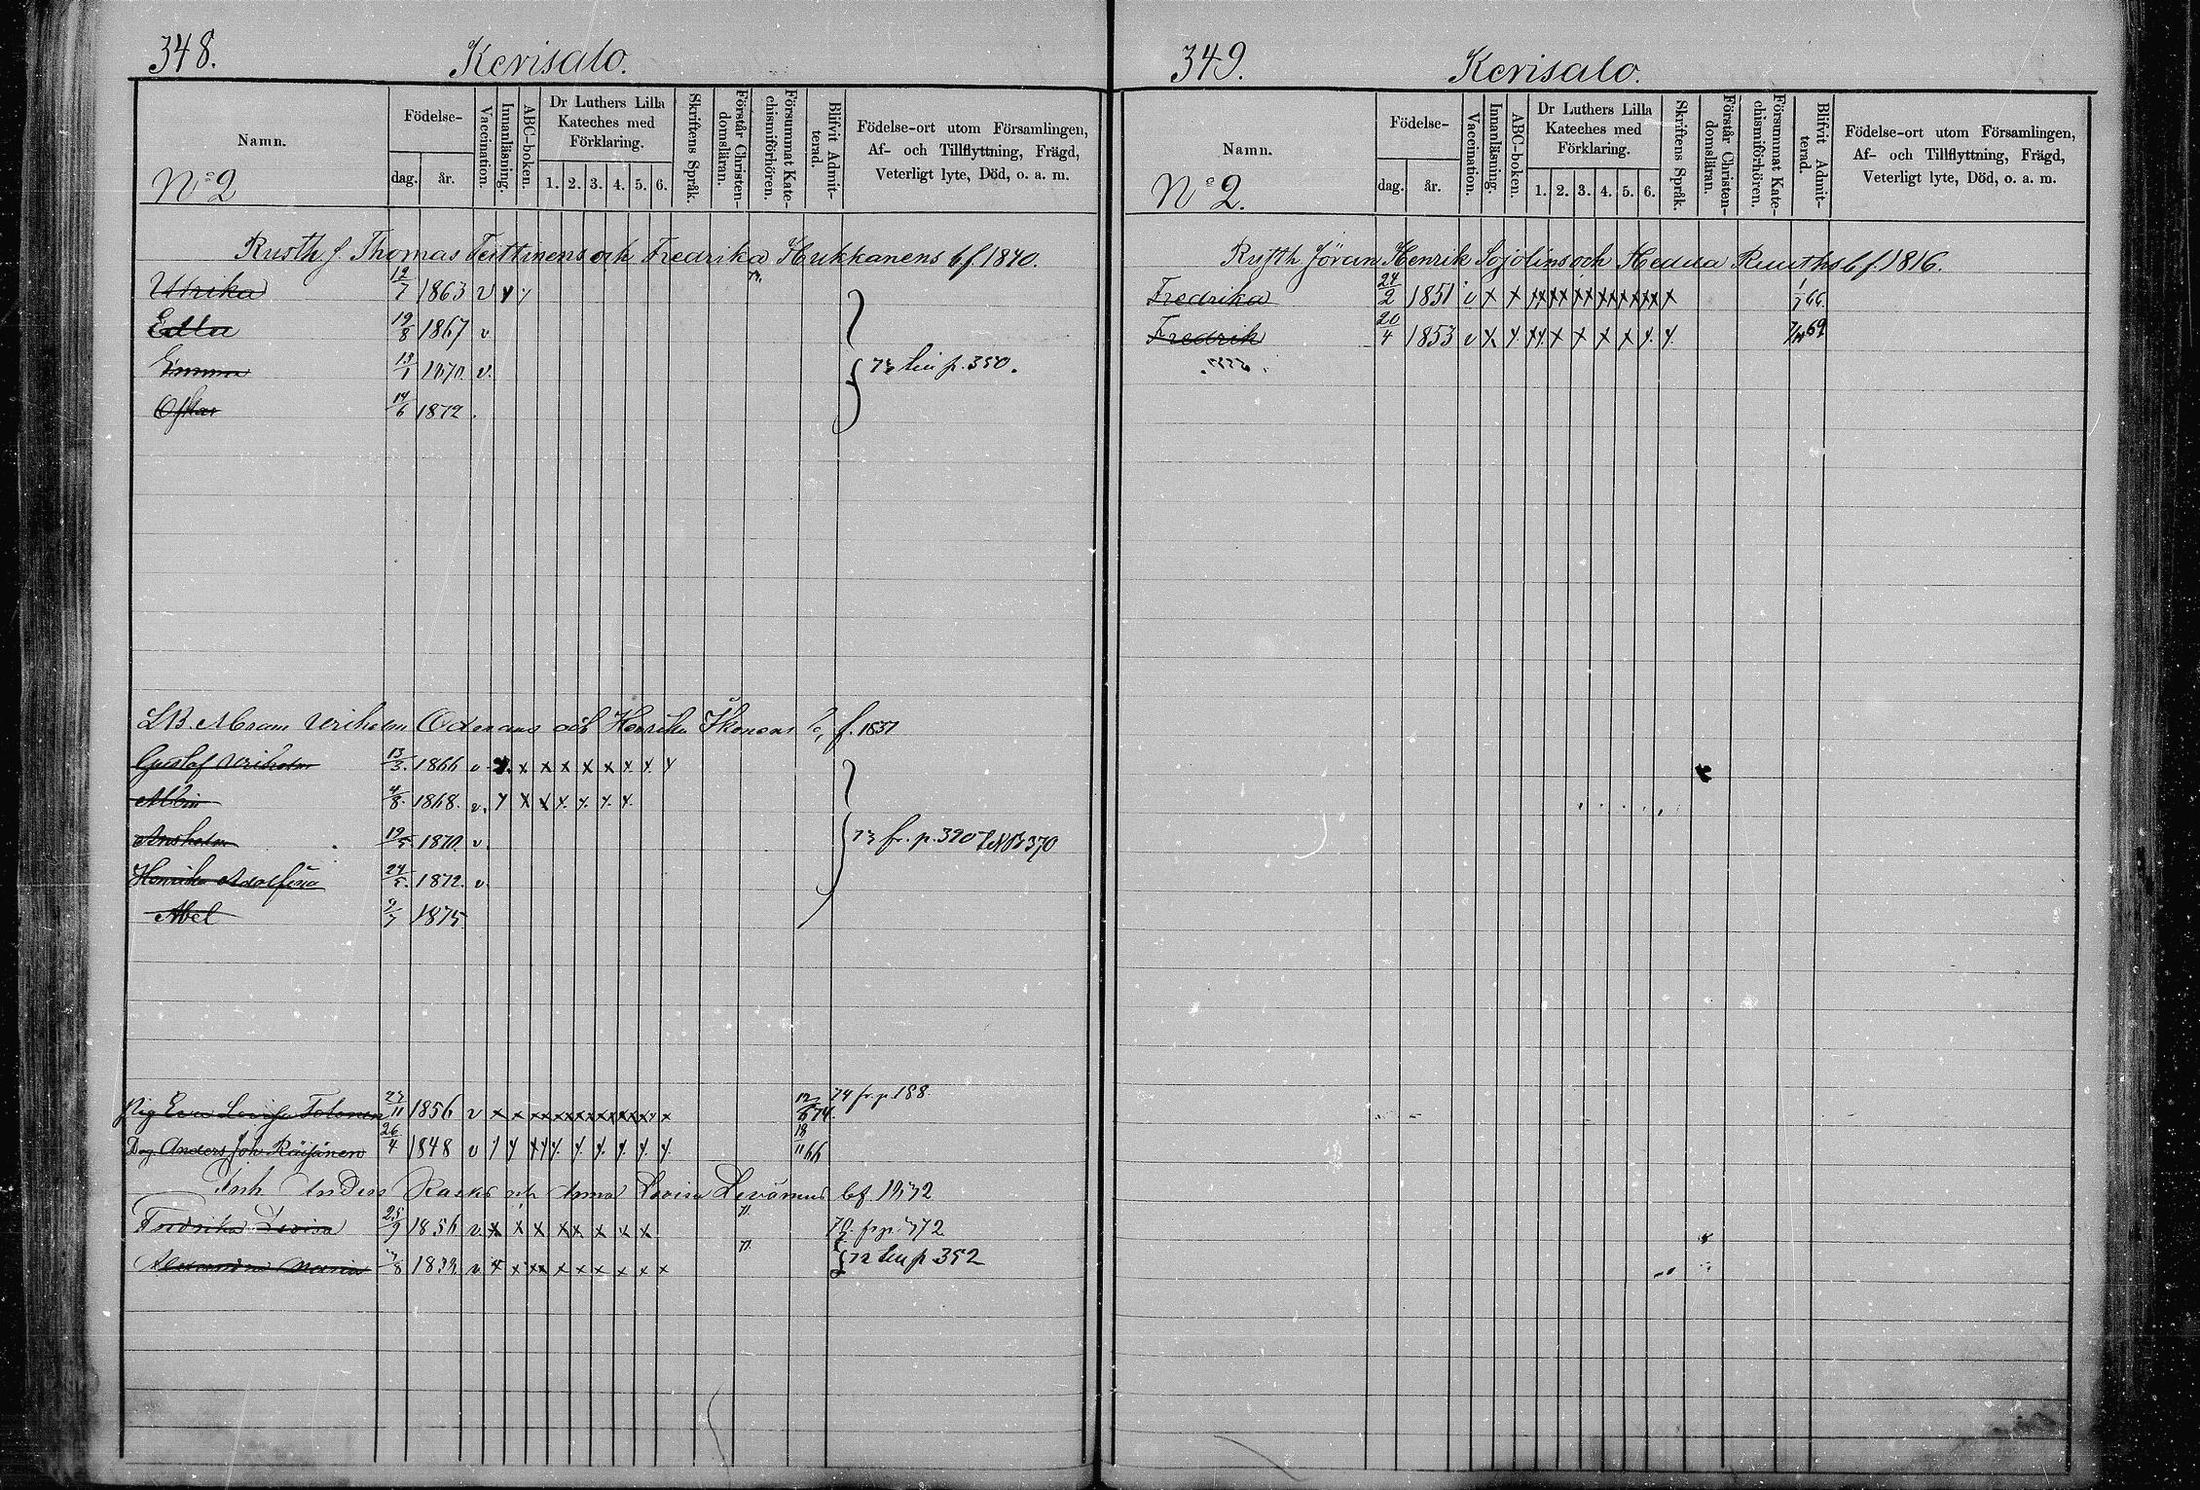 348.
Kerisalo.
Namn.
No 2
Födelse-
dag.
år.
Vaccination.
Innanläsning.
ABC-boken.
Dr Luthers Lilla
Kateches med
Förklaring.
1. 2. 3. 4. 5. 6.
Skriftens Språk.
Förstår Christen-
domsläran.
Försummat Kate-
chismiförhören.
Blifvit Admit-
terad.
Födelse-ort utom Församlingen,
Af- och Tillflyttning, Frägd,
Veterligt lyte, Död, o. a. m.
Rusth. f. Thomas Teittinens och Fredrika Hukkanens b. f. 1840.
Ulrika 12/7 1863 v x x
Edla 19/8 1867 v
Emma 13/1 1870 v. 73 till p. 350.
Oskar 14/6 1872.
LB. Abram Wilhelm Ödmans och Henrika Ikonens b. f. 1837
Gustaf Wilhelm 13/3. 1866 v. x x x x x x x x x
Albin 4/8. 1868. v. x x x x. x. x. x.
Ansholm 19/5 1870. v. 73 fr. p. 390 370
Henrika Adolfina 24/5. 1872. v.
Abel 9/7 1875
Pig Eva Lovisa Tolonen 27/11 1856 v x x xx xx xx xx xx xx x 12/6 74. 74 fr. p. 188.
Dg. Anders Joh. Räisänen 26/4 1848 v x x xx x. x. x. x. x. x. 18/11 66
Inh Anders Rasks och Anna Lovisa Levänens bf. 1832
Fredrika Lovisa 25/9 1856 v. x x x xx x x x 70. fr p. 372
Alexandra Maria 7/8 1839 v. x x xx x x x x x 72 till p 352
349.
Kerisalo.
Namn.
No 2.
Födelse-
dag.
år.
Vaccination.
Innanläsning.
ABC-boken.
Dr Luthers Lilla
Kateches med
Förklaring.
1. 2. 3. 4. 5. 6.
Skriftens Språk.
Förstår Christen-
domsläran.
Försummat Kate-
chismiförhören.
Blifvit Admit-
terad.
Födelse-ort utom Församlingen,
Af- och Tillflyttning, Frägd,
Veterligt lyte, Död, o. a. m.
Rusth Jöran Henrik Sojolins och Hedda Ruuths b. f. 1816.
Fredrika 24/2 1851 v x x xx xx xx xx xx xx x 1/7 66.
Fredrik 20/4 1853 v x x xx x x x x x. x. 69